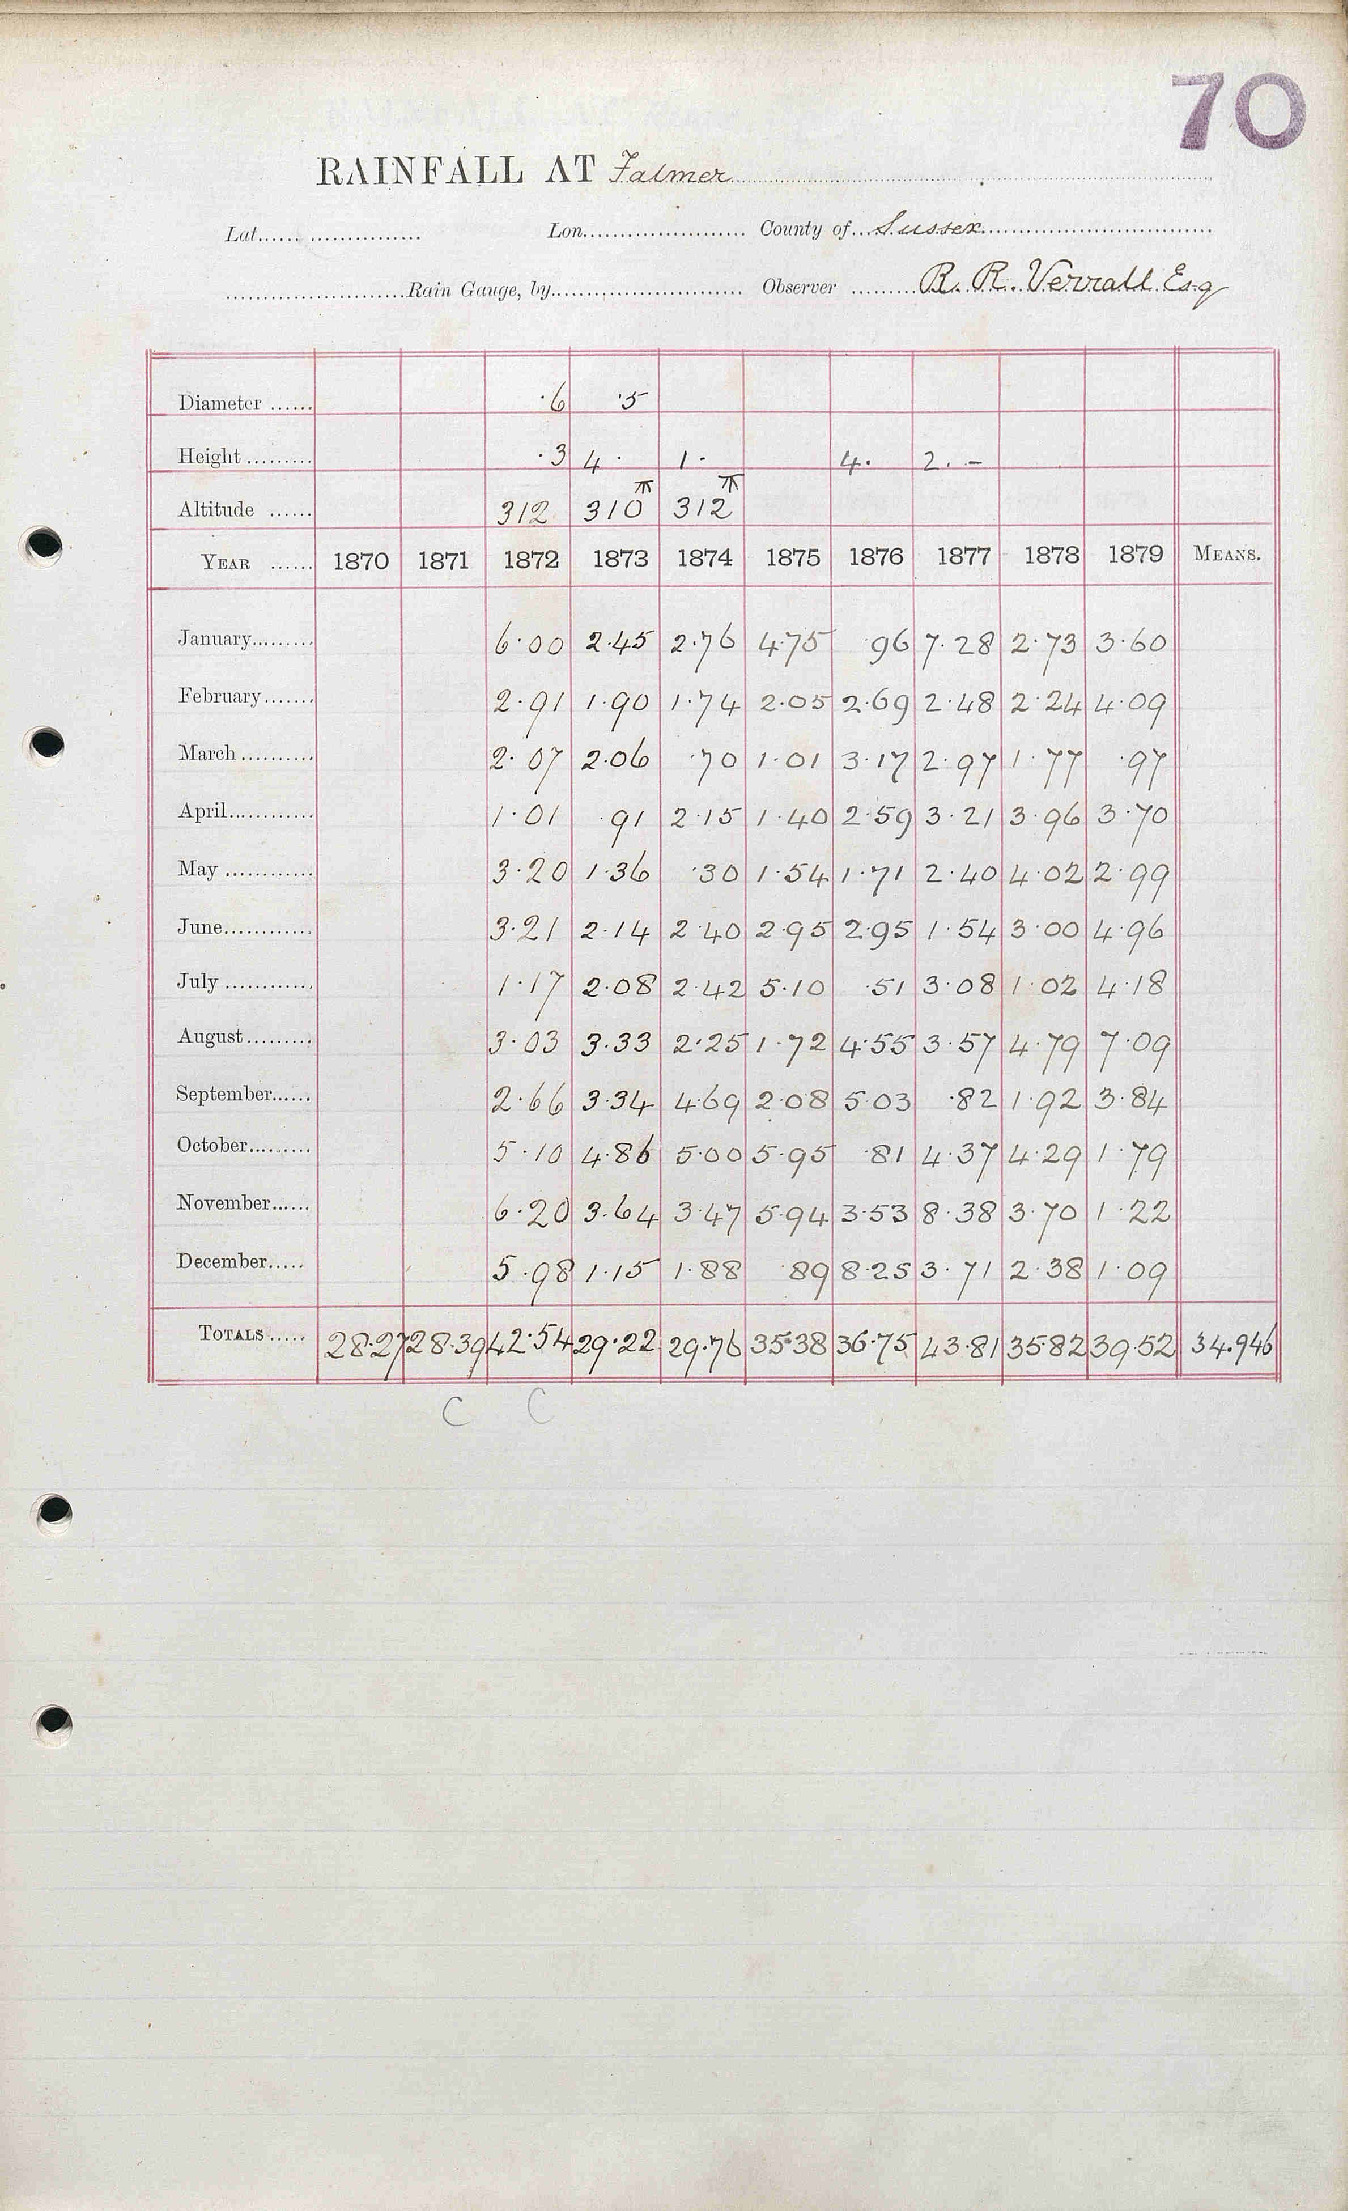 70
RAINFALL AT Falmer
Lat. Lon. County of Sussex
Rain Gauge, by Observer R. R. Verrall Esq
Diameter ·6 ·5
Height ·3 4· 1· 4· 2·-
Altitude 312 310 312
YEAR 1870 1871 1872 1873 1874 1875 1876 1877 1878 1879 MEANS.
January 6·00 2·45 2·76 4·75 ·96 7·28 2·73 3·60
February 2·91 1·90 1·74 2·05 2·69 2·48 2·24 4·09
March 2·07 2·06 ·70 1·01 3·17 2·97 1·77 ·97
April 1·01 ·91 2·15 1·40 2·59 3·21 3·96 3·70
May 3·20 1·36 ·30 1·54 1·71 2·40 4·02 2·99
June 3·21 2·14 2·40 2·95 2·95 1·54 3·00 4·96
July 1·17 2·08 2·42 5·10 ·51 3·08 1·02 4·18
August 3·03 3·33 2·25 1·72 4·55 3·57 4·79 7·09
September 2·66 3·34 4·69 2·08 5·03 ·82 1·92 3·84
October 5·10 4·86 5·00 5·95 ·81 4·37 4·29 1·79
November 6·20 3·64 3·47 5·94 3·53 8·38 3·70 1·22
December 5·98 1·15 1·88 ·89 8·25 3·71 2·38 1·09
TOTALS 28·27 28·39 42·54 29·22 29·76 35·38 36·75 43·81 35·82 39·52 34·946
C C